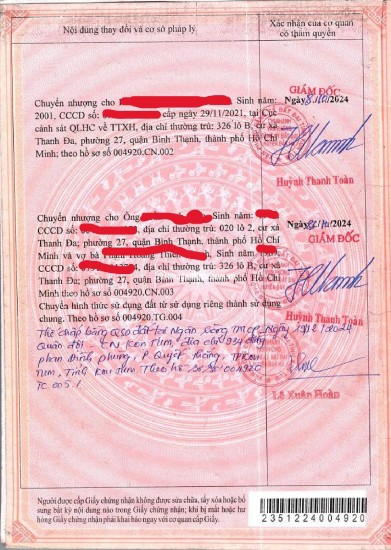 Nội dung thay đổi và cơ sở pháp lý
Xác nhận của cơ quan
có thẩm quyền
Chuyển nhượng cho Sinh năm:
2001, CCCD số: cấp ngày 29/11/2021, tại Cục
cảnh sát QLHC về TTXH, địa chỉ thường trú: 326 lô B, cư xá
Thanh Đa, phường 27, quận Bình Thạnh, thành phố Hồ Chí
Minh; theo hồ sơ số 004920.CN.002
Ngày /2024
GIÁM ĐỐC
Huỳnh Thanh Toàn
Chuyển nhượng cho Ông Sinh năm:
CCCD số: địa chỉ thường trú: 020 lô 2, cư xá
Thanh Đa; phường 27, quận Bình Thạnh, thành phố Hồ Chí
Minh và vợ bà Hoàng Sinh năm:
CCCD số: địa chỉ thường trú: 326 lô B, cư xá
Thanh Đa, phường 27, quận Bình Thạnh, thành phố Hồ Chí
Minh theo hồ sơ số 004920.CN.003
Chuyển hình thức sử dụng đất từ sử dụng riêng thành sử dụng
chung. Theo hồ sơ số 004920.TG.004
Ngày /2024
GIÁM ĐỐC
Huỳnh Thanh Toàn
Thế chấp bằng QSD đất tại Ngân hàng TMCP
Quân đội CN Kon Tum, địa chỉ 934 đường
phan Đình phùng, P Quyết Thắng, TP Kon
Tum, Tỉnh Kon Tum Theo hồ sơ số 004920
TC.005./
Ngày /12/2024
Lê Xuân Hoàn
Người được cấp Giấy chứng nhận không được sửa chữa, tẩy xóa hoặc bổ
sung bất kỳ nội dung nào trong Giấy chứng nhận; khi bị mất hoặc hư
hỏng Giấy chứng nhận phải khai báo ngay với cơ quan cấp Giấy.
2351224004920